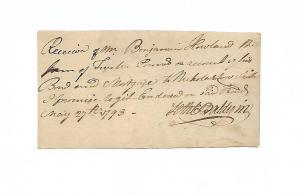 Received of Mr. Benjamin Howland the
Sum of Twelve Pound on account of his
Bond and Mortgage to Nicholas Low Which
I promise to get Endorsed on said Bond
May 27th 1793 -